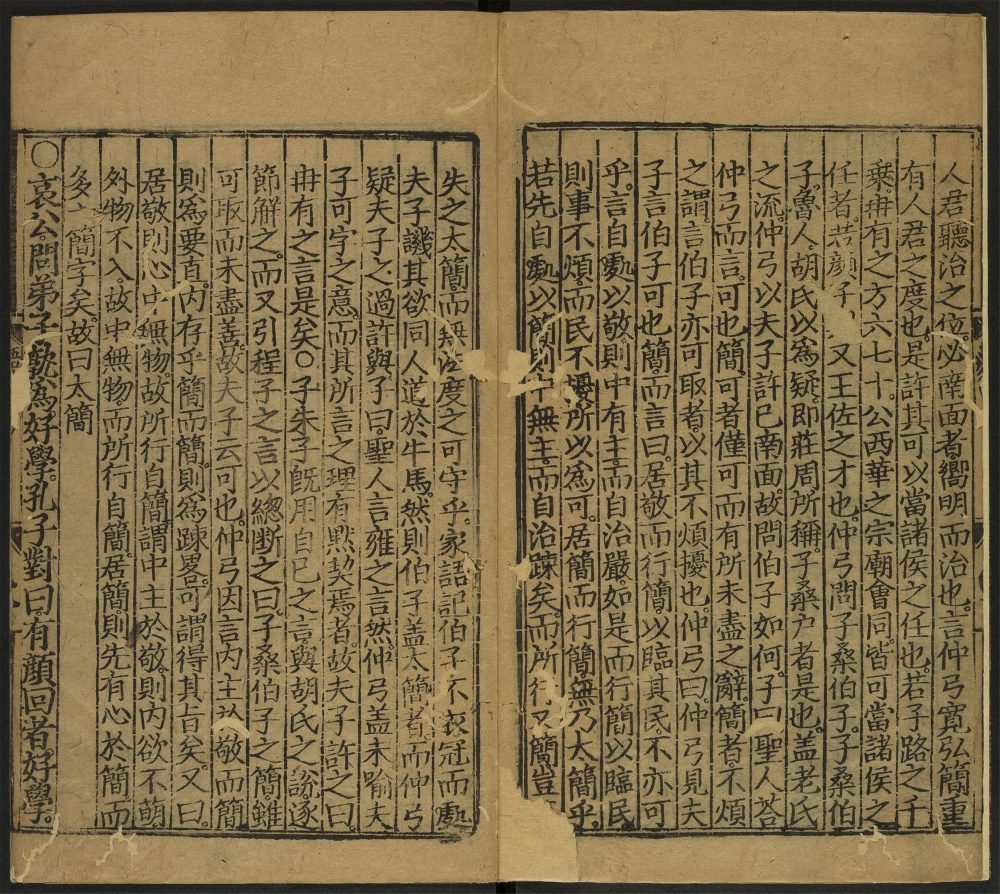 人君聽治之位必南面者嚮明而治也言仲弓寛弘簡重
有人君之度也是許其可以當諸侯之任也若子路之千
乗冉有之方六七十公西華之宗廟會同皆可當諸侯之
任者若顔子 又王佐之才也仲弓問子桑伯子子桑伯
子魯人胡氏以爲疑即莊周所稱子桑户者是也盖老氏
之流仲弓以夫子許已南面故問伯子如何子曰聖人荅
仲弓而言可也簡可者僅可而有所未盡之辭簡者不煩
之謂言伯子亦可取者以其不煩擾也仲弓曰仲弓見夫
子言伯子可也簡而言曰居敬而行簡以臨其民不亦可
乎言自處以敬則中有主而自治嚴如是而行簡以臨民
則事不煩而民不擾所以爲可居簡而行簡無乃大簡乎
若先自處以簡則中無主而自治踈矣而所行又簡豈
失之太簡而無法度之可守乎家語記伯子不衣冠而處
夫子譏其欲同人道於牛馬然則伯子盖太簡者而仲弓
疑夫子之過許與子曰聖人言雍之言然仲弓盖未喻夫
子可字之意而其所言之理有黙契焉者故夫子許之曰
冉有之言是矣○子朱子旣用自已之言與胡氏之說逐
節解之而又引程子之言以總断之曰子桑伯子之簡雖
可取而未盡善故夫子云可也仲弓因言内主於敬而簡
則爲要直内存乎簡而簡則爲踈畧可謂得其旨矣又曰
居敬則心中無物故所行自簡謂中主於敬則内欲不萌
外物不入故中無物而所行自簡居簡則先有心於簡而
多一簡字矣故曰太簡
○哀公問弟子孰爲好學孔子對曰有顔回者好學